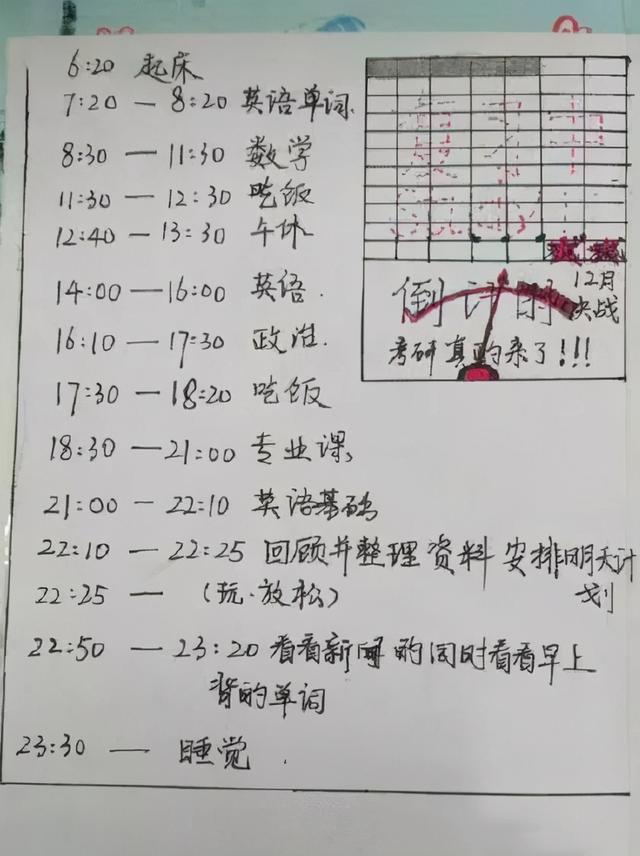 6:20 起床
7:20 — 8:20 英语单词
8:30 — 11:30 数学
11:30 — 12:30 吃饭
12:40 — 13:30 午休
14:00 — 16:00 英语.
16:10 — 17:30 政治.
17:30 — 18:20 吃饭
18:30 — 21:00 专业课
21:00 — 22:10 英语基础
22:10 — 22:25 回顾并整理资料 安排明天计
划
22:25 — (玩.放松)
22:50 — 23:20 看看新闻的同时看看早上
背的单词
23:30 — 睡觉.
倒计时
12月
决战
考研真的来了!!!